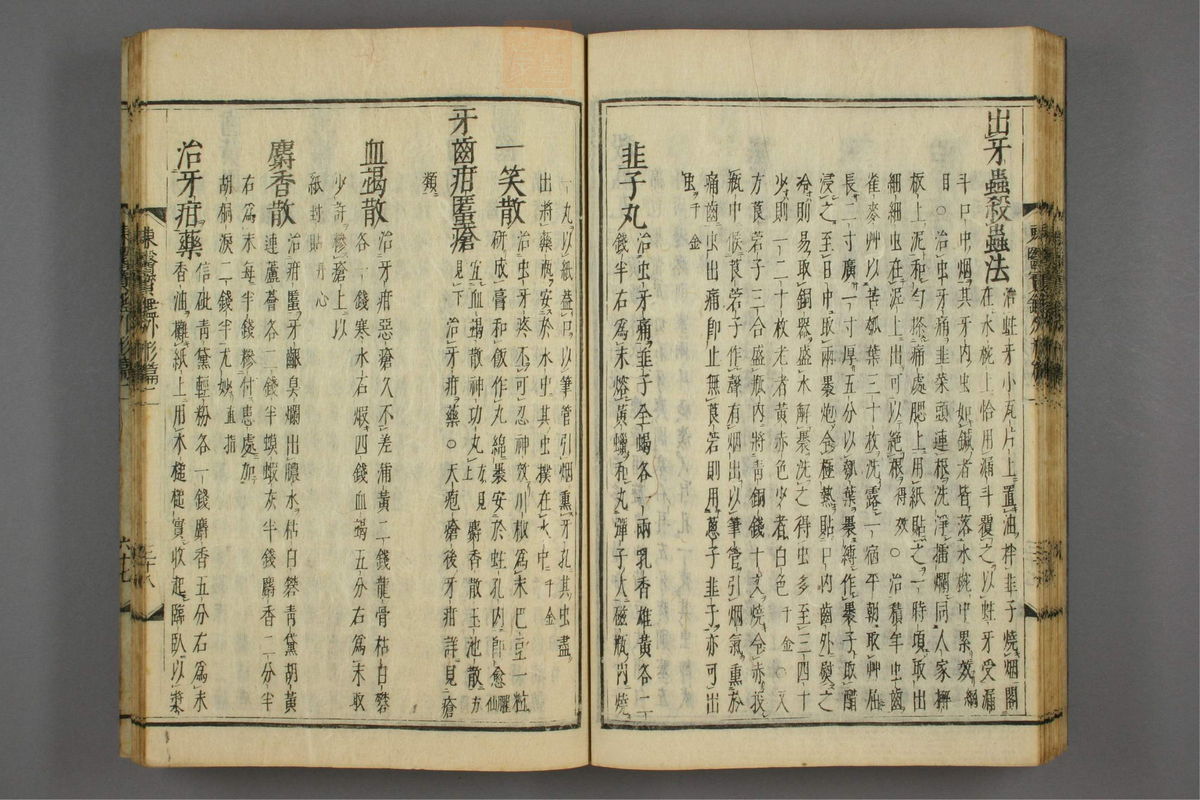 出牙蟲殺蟲法 治蛀牙小瓦片上置油拌韭子燒烟閣
在水椀上恰用漏斗覆之以蛀牙受漏
斗口中烟其牙內虫如鍼者皆落水椀中累效綱
目○治虫牙痛韭菜頭連根洗淨擂爛同人家
板上泥和勻搽痛處腮上用紙貼之一時頃取出
細細虫在泥上出可以絶根得效○治積年虫齒
雀麥艸以苦瓠葉三十枚洗露一宿平朝取艸
長二寸廣一寸厚五分以瓠葉裹縛作裹子取醋
浸之至日中取兩裹炮令極熱貼口內齒外熨之
冷則易取銅器盛水解裹洗之得虫多至三四十
少則一二十枚老者黃赤色少者白色千金○又
方莨菪子三合盛瓶內將青銅錢十文燒令赤投
瓶中候莨菪子作聲有烟出以筆管引烟氣熏於
痛齒虫出痛卽止無莨菪則用蔥子韭子亦可出
虫千金
韭子丸 治虫牙痛韭子全蝎各一兩乳香雄黃各二
錢半右爲末熔黃蠟和丸彈子大磁瓶內燒
一丸以紙蓋口以筆管引烟熏牙孔其虫盡
出將藥瓶安於水中其虫樸在水中千金
一笑散 治虫牙疼不可忍神效川椒爲末巴豆一粒
研成膏和飯作丸綿裹安於蛀孔內卽愈臞仙
牙齒疳䘌瘡 宜血竭散神功丸方見上麝香散玉池散方
見下治牙疳藥○天疱瘡後牙疳詳見瘡
類
血竭散 治牙疳惡瘡久不差蒲黃二錢龍骨枯白礬
各一錢寒水石煆四錢血竭五分右爲末取
少許糝瘡上以
紙封貼丹心
麝香散 治疳䘌牙齗臭爛出膿水枯白礬青黛胡黃
連蘆薈各二錢半蟆蝦灰半錢麝香二分半
右爲末每半錢糝付患處如
胡桐淚二錢半尤妙直指
治牙疳藥 信砒青黛輕粉各一錢麝香五分右爲末
香油攤紙上用木槌槌實收起臨臥以漿
東醫寶鑑外形篇二